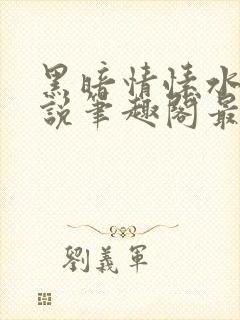 黑暗情愫水
說筆趣閣最
劉義軍